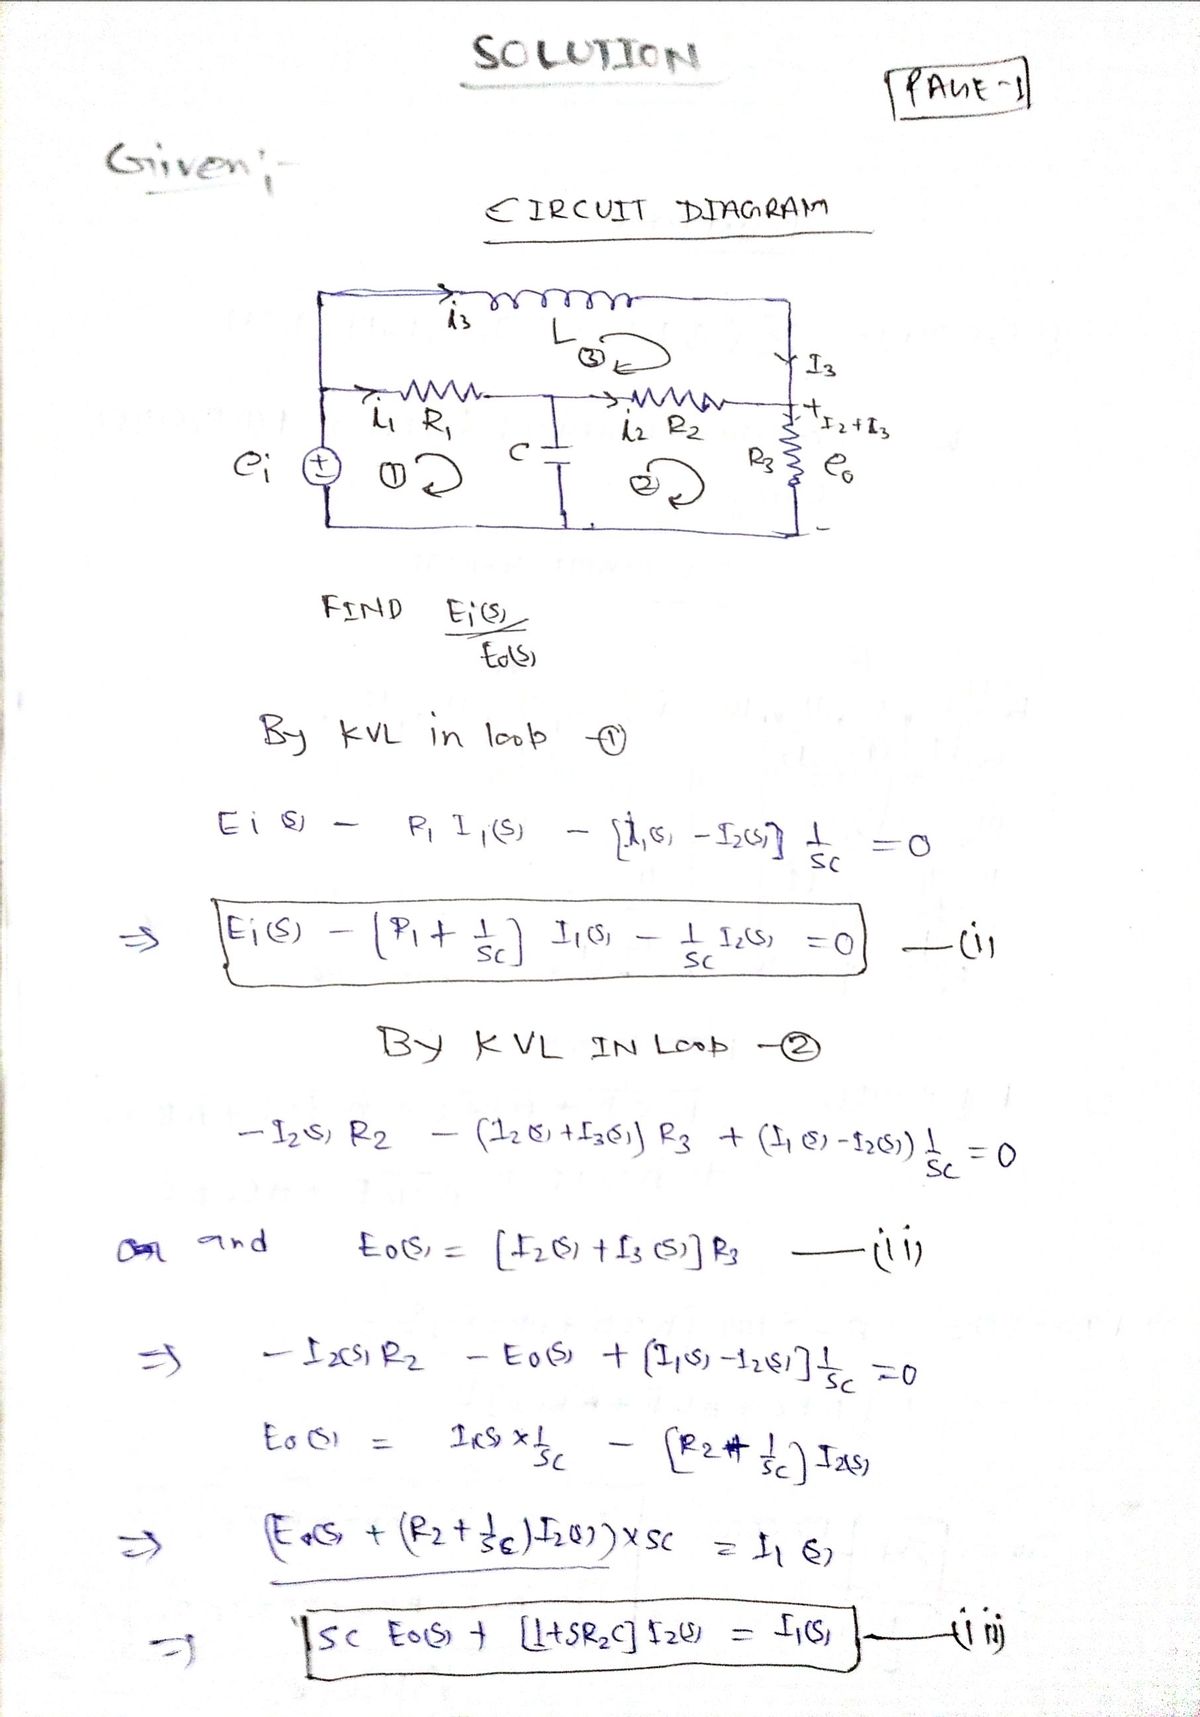 SOLUTION
PAGE-1
Given:-
CIRCUIT DIAGRAM
i3
L
③
I3
i1 R1
i2 R2
+
I2+I3
ei
+
-
①
C
②
R3
eo
-
FIND Ei(s)/Eo(s)
By KVL in loop -①
Ei(s) - R1 I1(s) - [I1(s) - I2(s)] 1/SC = 0
⇒ Ei(s) - [R1 + 1/SC] I1(s) - 1/SC I2(s) = 0 —(i)
By KVL IN Loop -②
- I2(s) R2 - (I2(s) + I3(s)) R3 + (I1(s) - I2(s)) 1/SC = 0
and Eo(s) = [I2(s) + I3(s)] R3 —(ii)
⇒ - I2(s) R2 - Eo(s) + [I1(s) - I2(s)] 1/SC = 0
Eo(s) = I1(s) × 1/SC - [R2 + 1/SC] I2(s)
⇒ (Eo(s) + (R2 + 1/SC) I2(s)) × SC = I1(s)
⇒ SC Eo(s) + [1+SR2C] I2(s) = I1(s) —(iii)